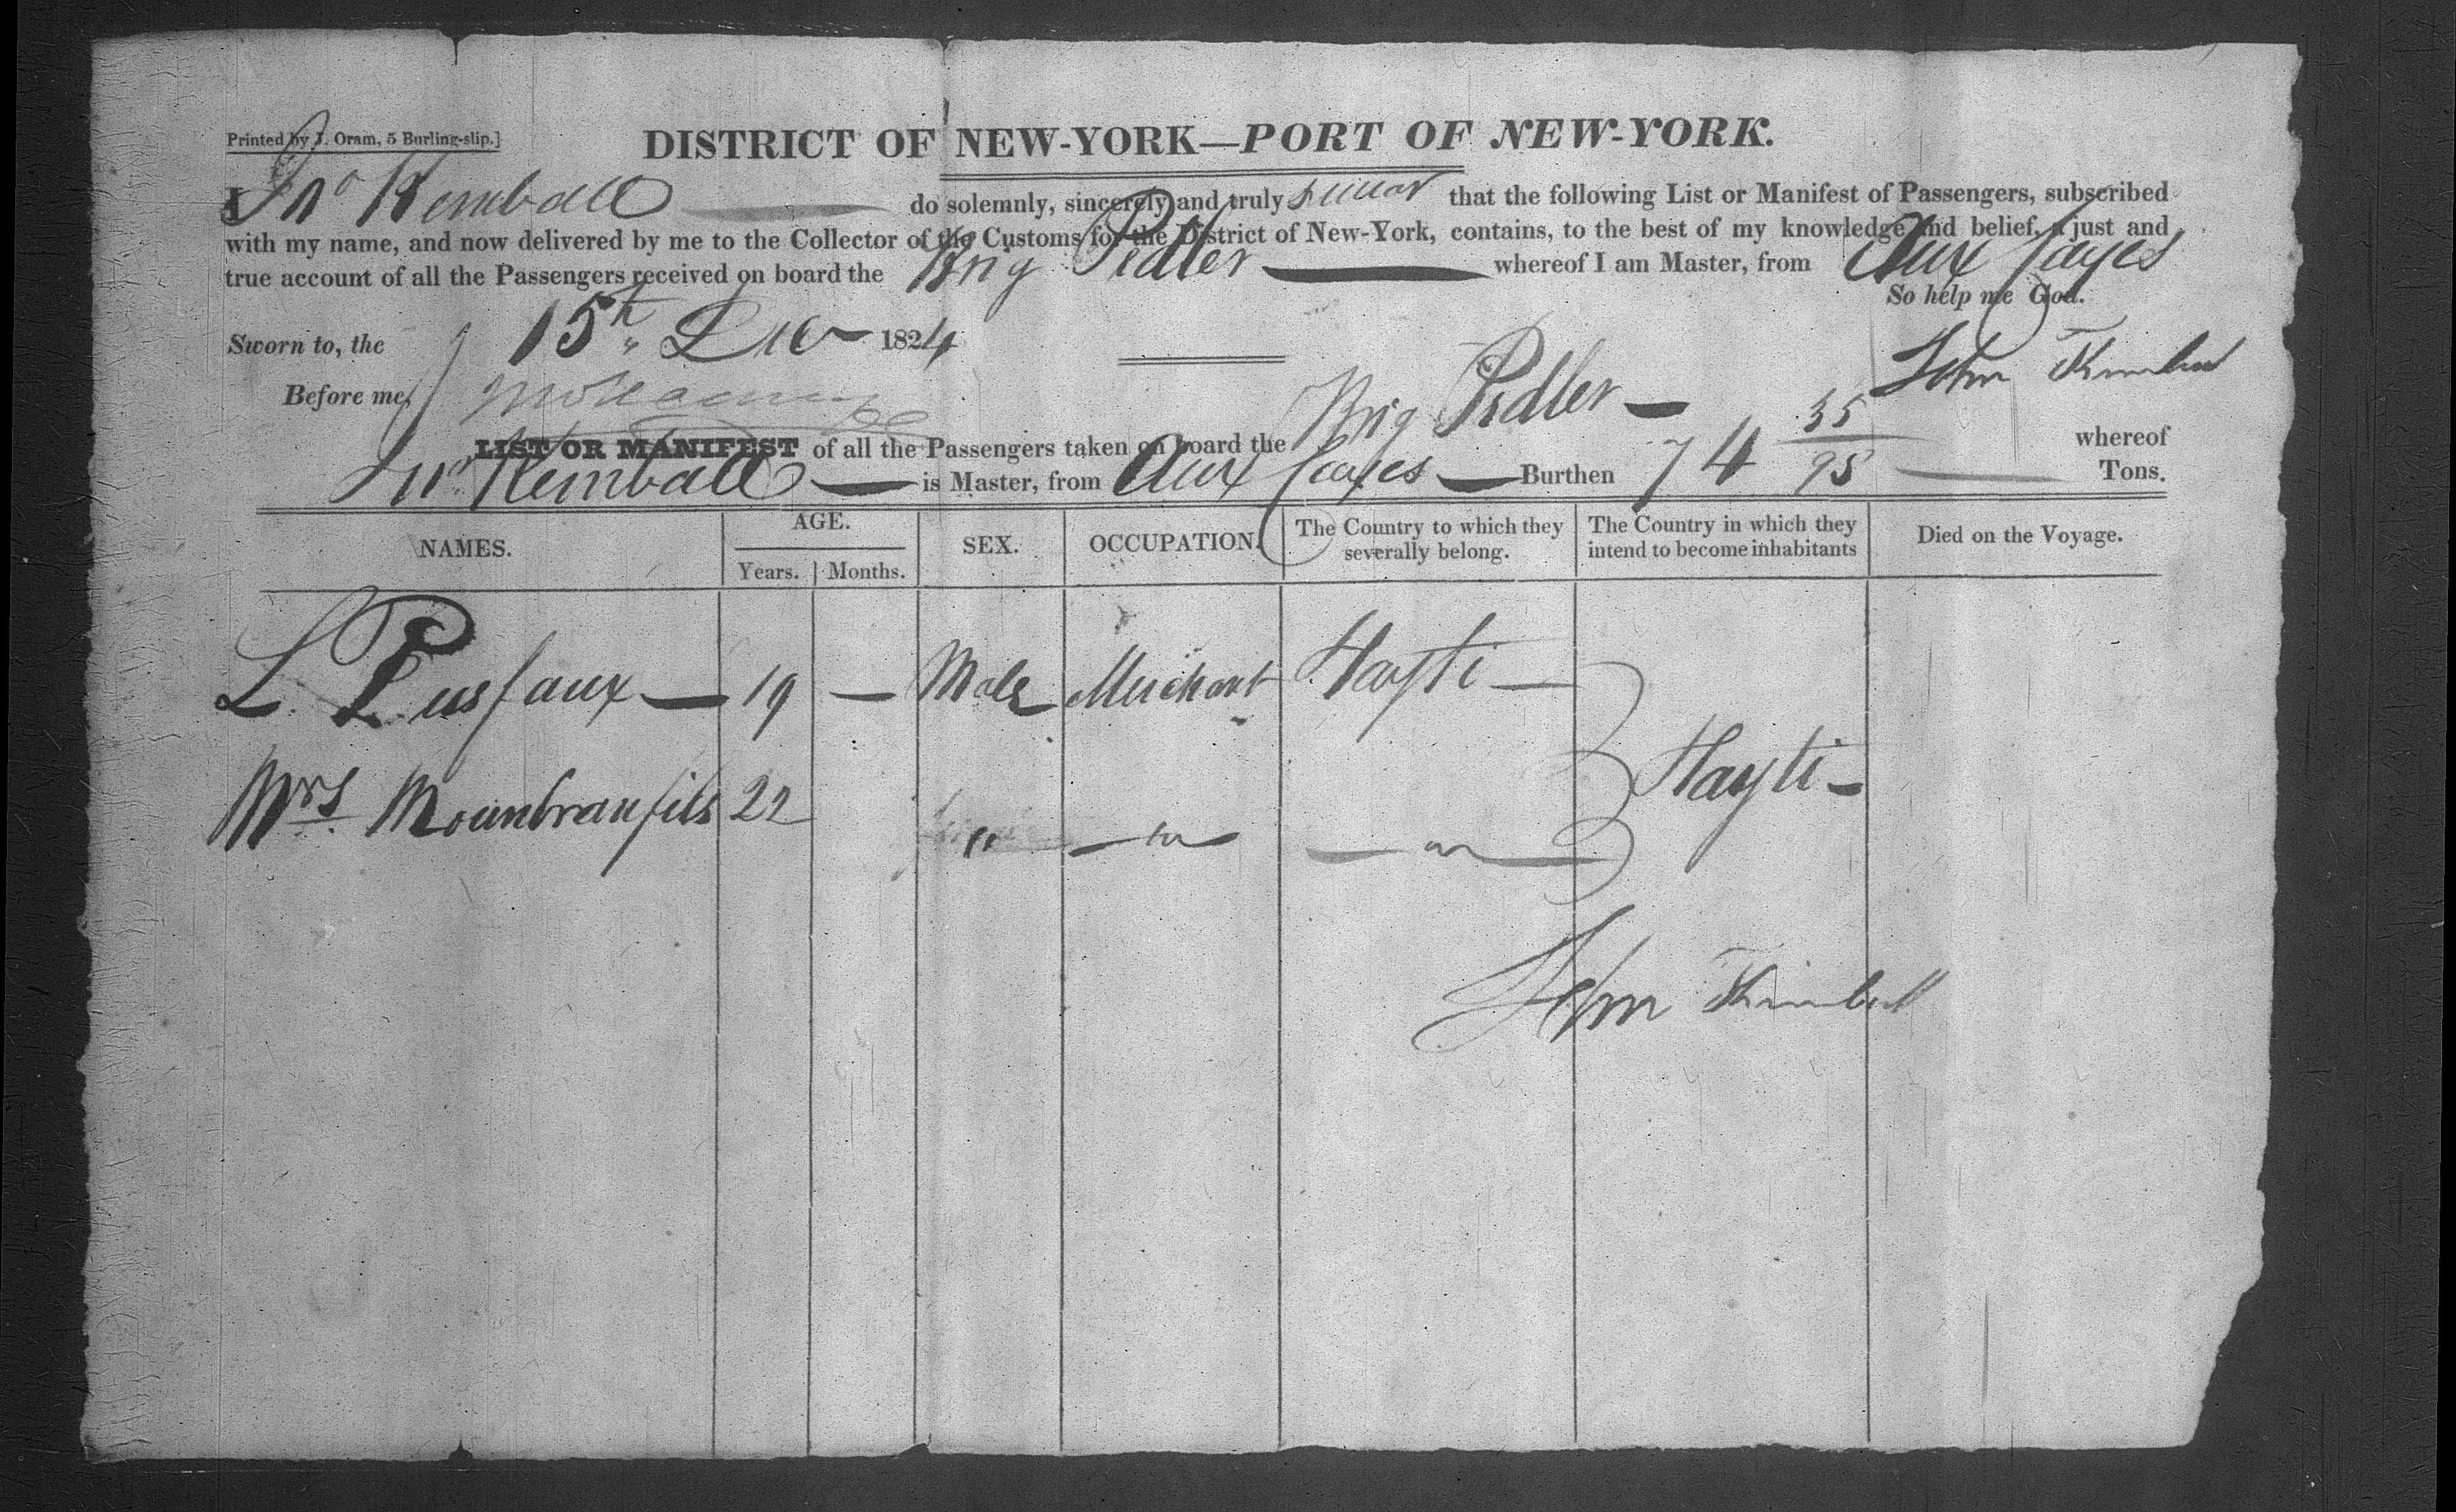 Printed by J. Oram, 5 Burling-slip.]
DISTRICT OF NEW-YORK—PORT OF NEW-YORK.
I Jno Kemball do solemnly, sincerely and truly swear that the following List or Manifest of Passengers, subscribed
with my name, and now delivered by me to the Collector of the Customs for the District of New-York, contains, to the best of my knowledge and belief, a just and
true account of all the Passengers received on board the Brig Pedler whereof I am Master, from Aux Cayes
So help me God.
Sworn to, the 15th Dec 1824
John Kimball
Before me,
LIST OR MANIFEST of all the Passengers taken on board the Brig Pedler — whereof
Jno Kemball — is Master, from Aux Cayes — Burthen 74 35/95 Tons.
NAMES. AGE. Years. Months. SEX. OCCUPATION. The Country to which they severally belong. The Country in which they intend to become inhabitants Died on the Voyage.
L. — 19 — Male Merchant Hayti —
Hayti —
Mrs 22 " — " — — " —
John Kimball